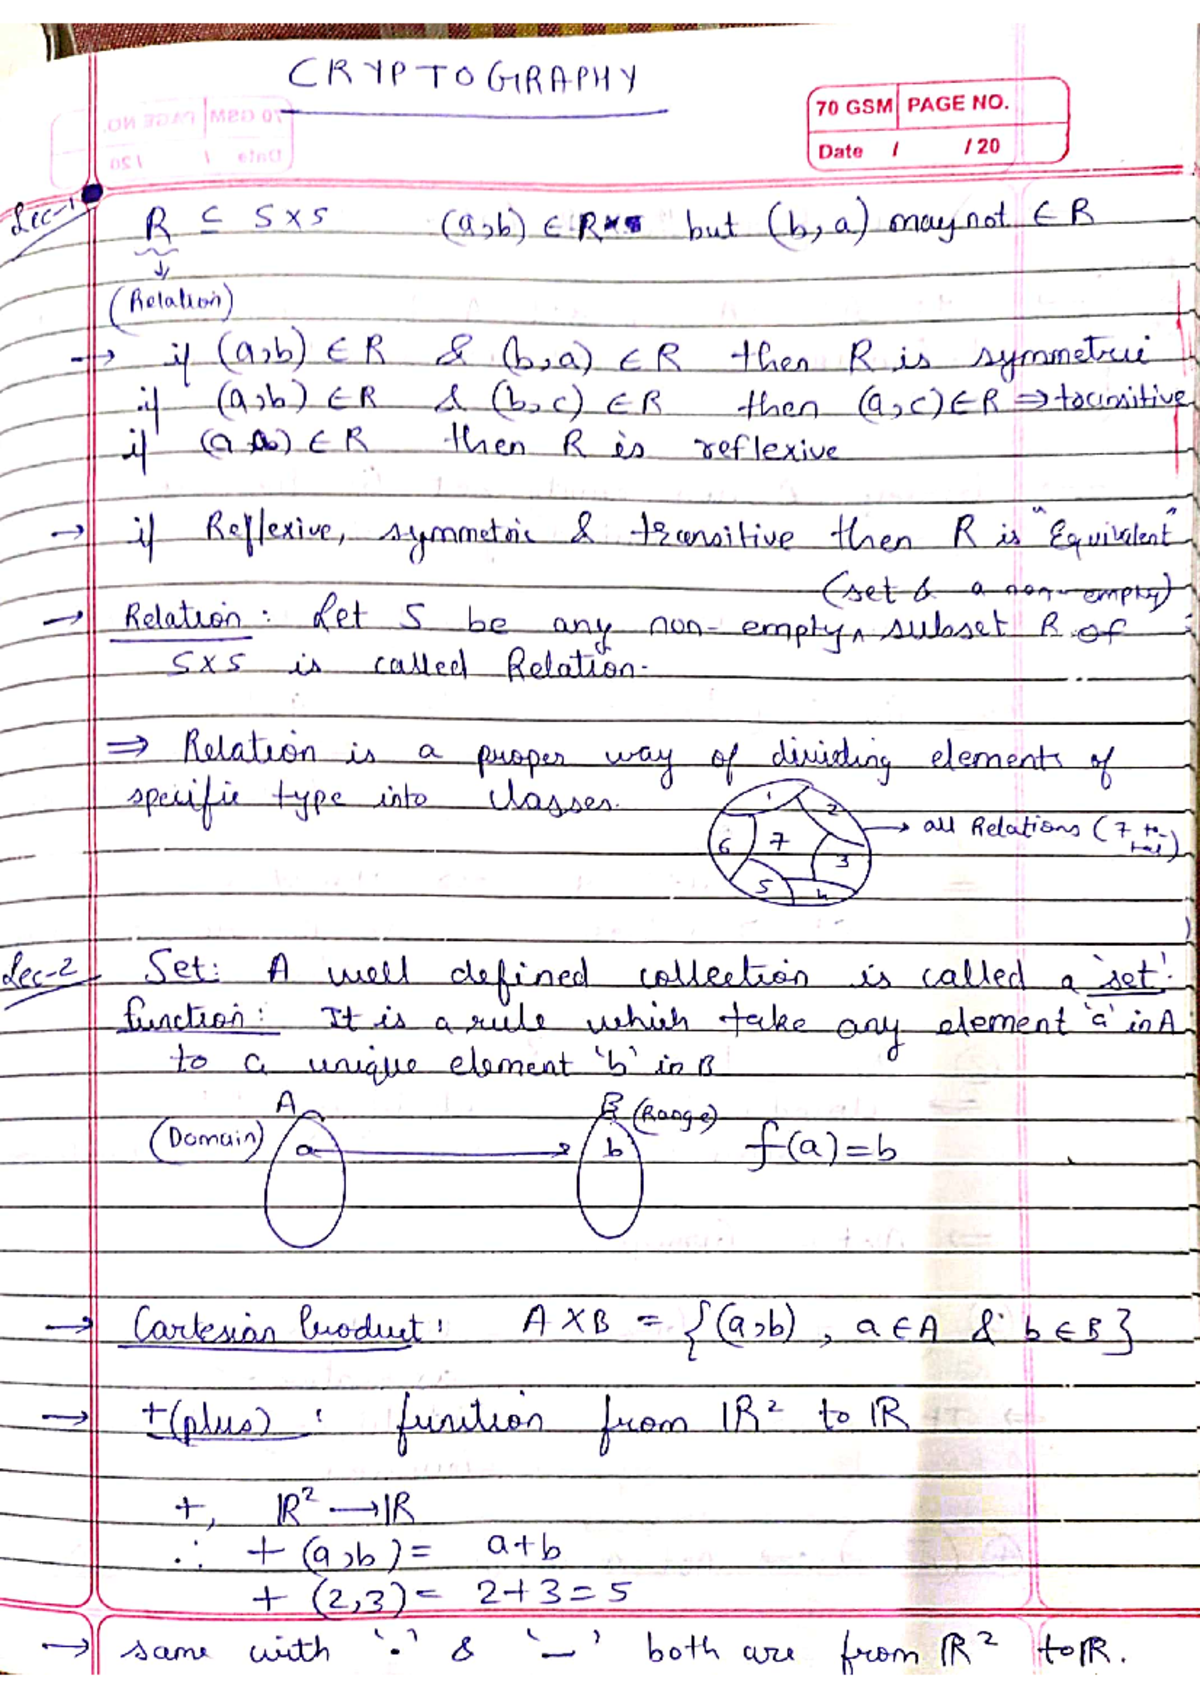 CRYPTOGRAPHY
70 GSM PAGE NO.
Date / / 20
Lec-1
R ⊆ S×S (a,b) ∈ R but (b,a) may not ∈ R
(Relation)
→ if (a,b) ∈ R & (b,a) ∈ R then R is symmetric
if (a,b) ∈ R & (b,c) ∈ R then (a,c) ∈ R ⇒ transitive
if (a a) ∈ R then R is reflexive
→ if Reflexive, symmetric & transitive then R is "Equivalent"
(set & a non-empty)
→ Relation: Let S be any non-empty ^ subset R of
S×S is called Relation.
⇒ Relation is a proper way of dividing elements of
specific type into classes.
1 2 3 4 5 6 7
→ all Relations (7 total)
Lec-2 Set: A well defined collection is called a 'set'.
function: It is a rule which take any element 'a' in A
to a unique element 'b' in B
A B (Range)
(Domain) a → b f(a)=b
→ Cartesian Product: A×B = {(a,b), a∈A & b∈B}
→ +(plus): function from ℝ² to ℝ
+, ℝ² → ℝ
∴ +(a,b) = a+b
+(2,3) = 2+3=5
→ same with '·' & '–' both are from ℝ² to ℝ.